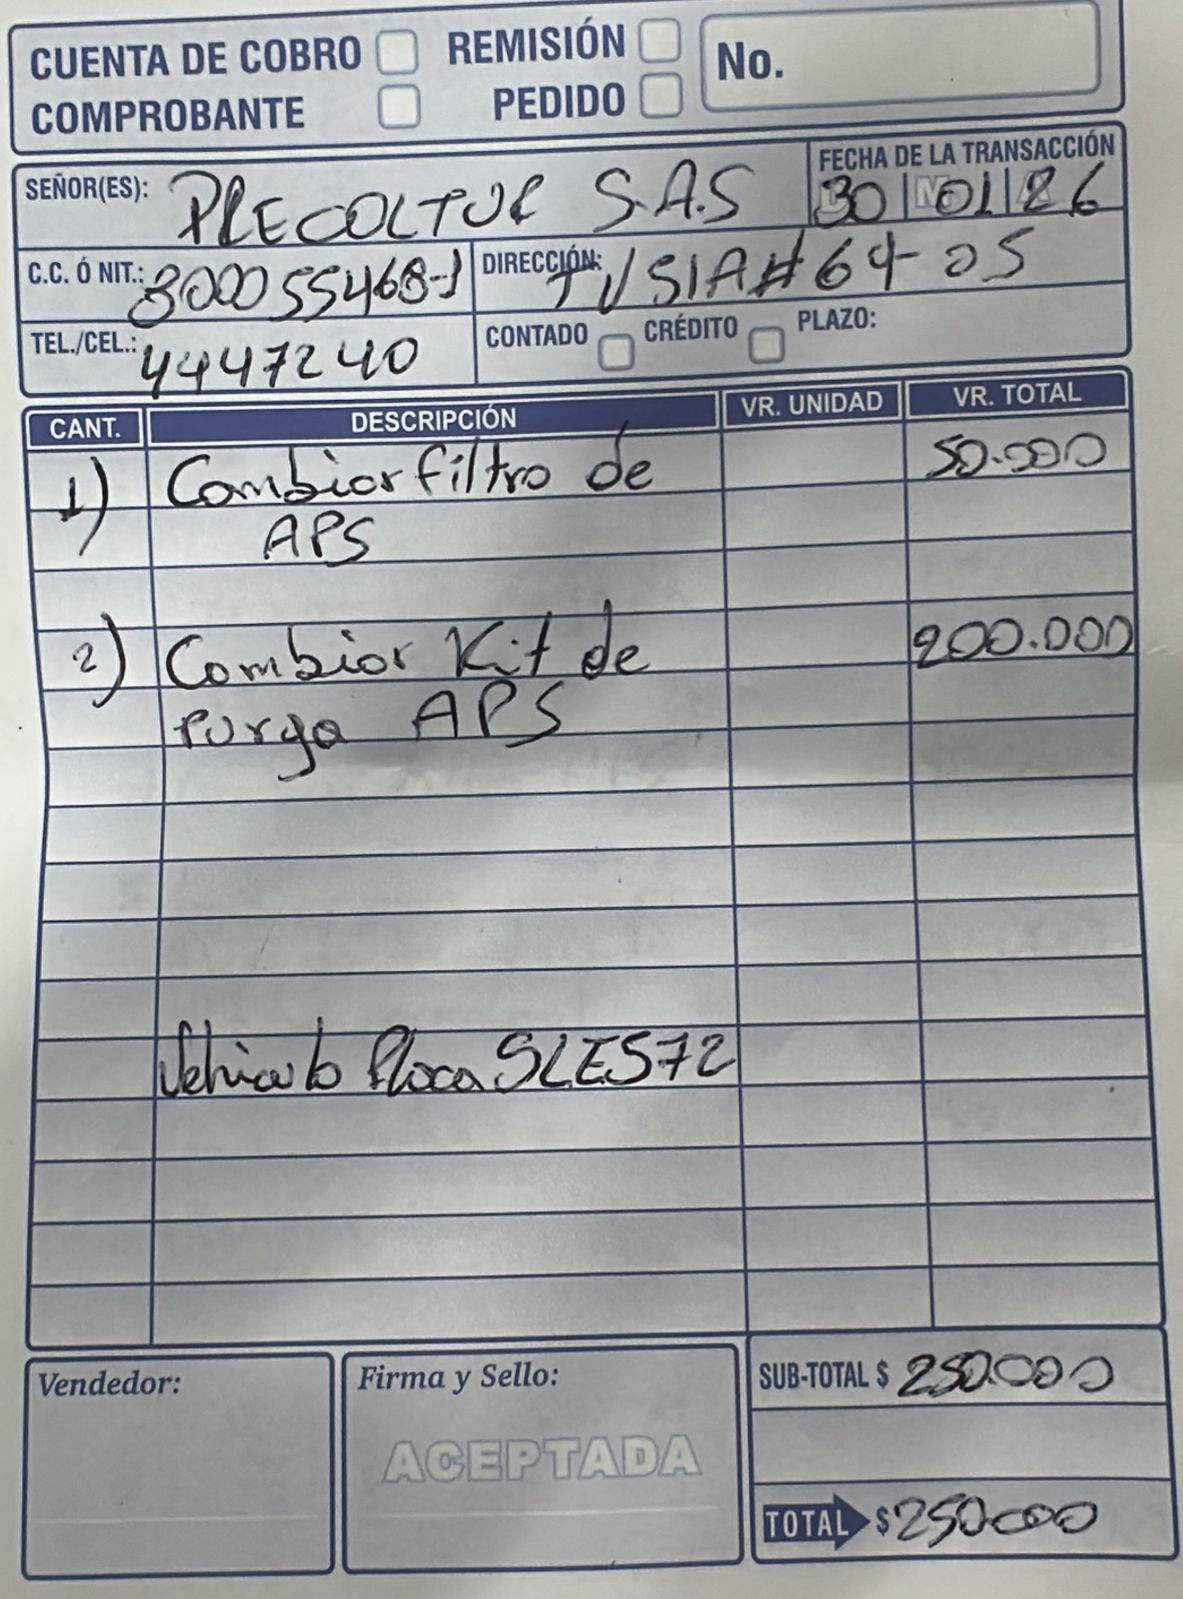 CUENTA DE COBRO REMISIÓN No.
COMPROBANTE PEDIDO
SEÑOR(ES): PRECOLTUR S.A.S
FECHA DE LA TRANSACCIÓN
30 01 26
C.C. Ó NIT.: 800055468-1 DIRECCIÓN: TV 51A # 64-05
TEL./CEL.: 4447240 CONTADO CRÉDITO PLAZO:
CANT. DESCRIPCIÓN VR. UNIDAD VR. TOTAL
1) Cambiar filtro de 50.000
APS
2) Cambior Kit de 200.000
Purga APS
Vehiculo Placa SLE572
Vendedor: Firma y Sello: SUB-TOTAL $ 250.000
ACEPTADA
TOTAL $ 250000